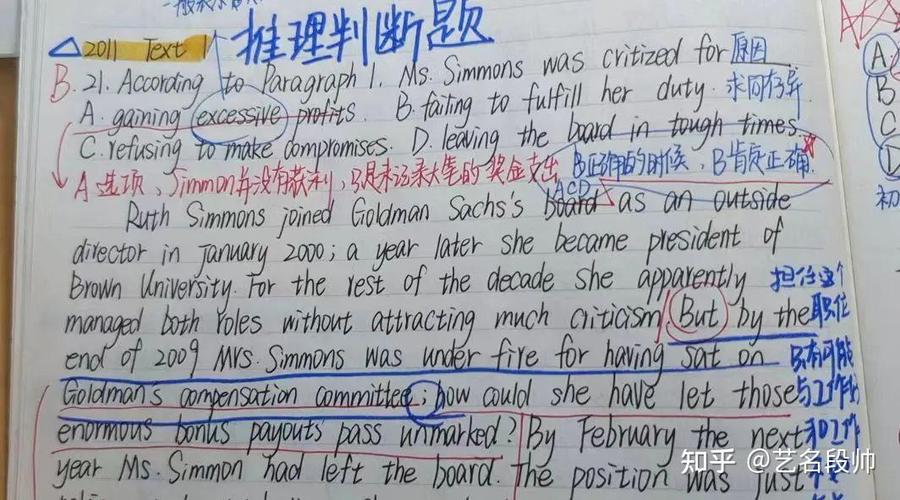 △ 2011 Text 1 推理判断题
B. 21. According to Paragraph 1, Ms. Simmons was critized for 原因
A. gaining excessive profits. B. failing to fulfill her duty. 求同存异
C. refusing to make compromises. D. leaving the board in tough times.
A选项、Simmon并没有获利，B是未记录大笔的奖金支出 B正确的时候，B肯定正确
ACD
Ruth Simmons joined Goldman Sachs's board as an outside
director in January 2000; a year later she became president of
Brown University. For the rest of the decade she apparently 担任这个
managed both roles without attracting much criticism. But by the 职位
end of 2009 Mrs. Simmons was under fire for having sat on 有可能
Goldman's compensation committee; how could she have let those 与工作
enormous bonus payouts pass unmarked? By February the next 和工作
year Ms. Simmon had left the board. The position was just
知乎 @艺名段帅
A
B
C
D
初